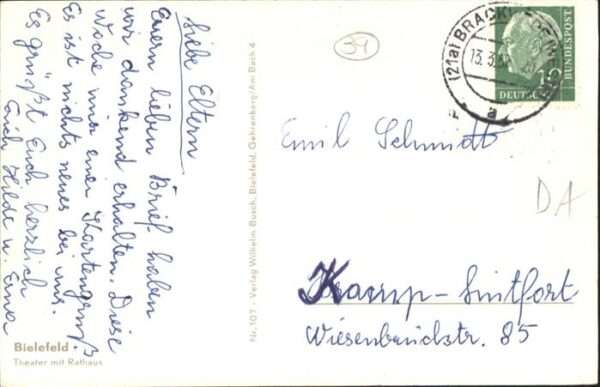 Liebe Eltern
Euern lieben Brief haben
wir dankend erhalten. Diese
Woche nur einen Kartengruß.
Es ist nichts neues bei uns.
Es grüßt Euch herzlich
Erich Hilde u. Erna
Bielefeld
Theater mit Rathaus
Nr. 107 - Verlag Wilhelm Busch, Bielefeld, Gehrenberg/Am Bach 4
34
(21a) BRACKWEDE
13.3.
a
DEUTSCHE BUNDESPOST
10
Emil Schmidt
DA
Kamp-Lintfort
Wiesenbruchstr. 85